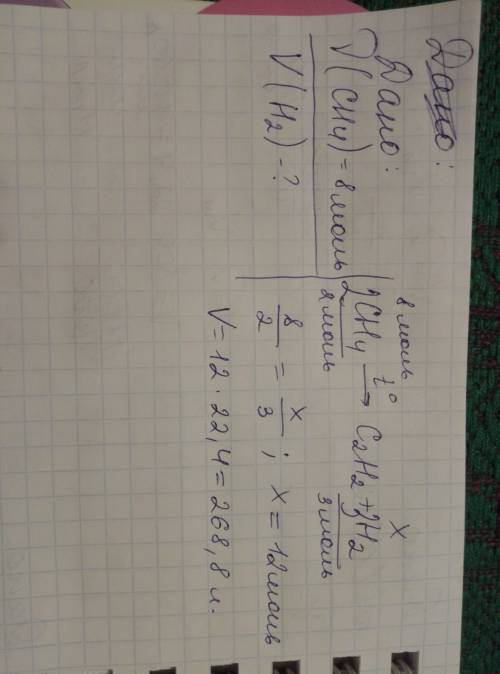 Дано:
Дано:
8 моль x
ν(CH4) = 8 моль 2CH4 t° → C2H2 + 3H2
2 моль 3 моль
V(H2) - ?
8/2 = x/3 ; x = 12 моль
V = 12 · 22,4 = 268,8 л.